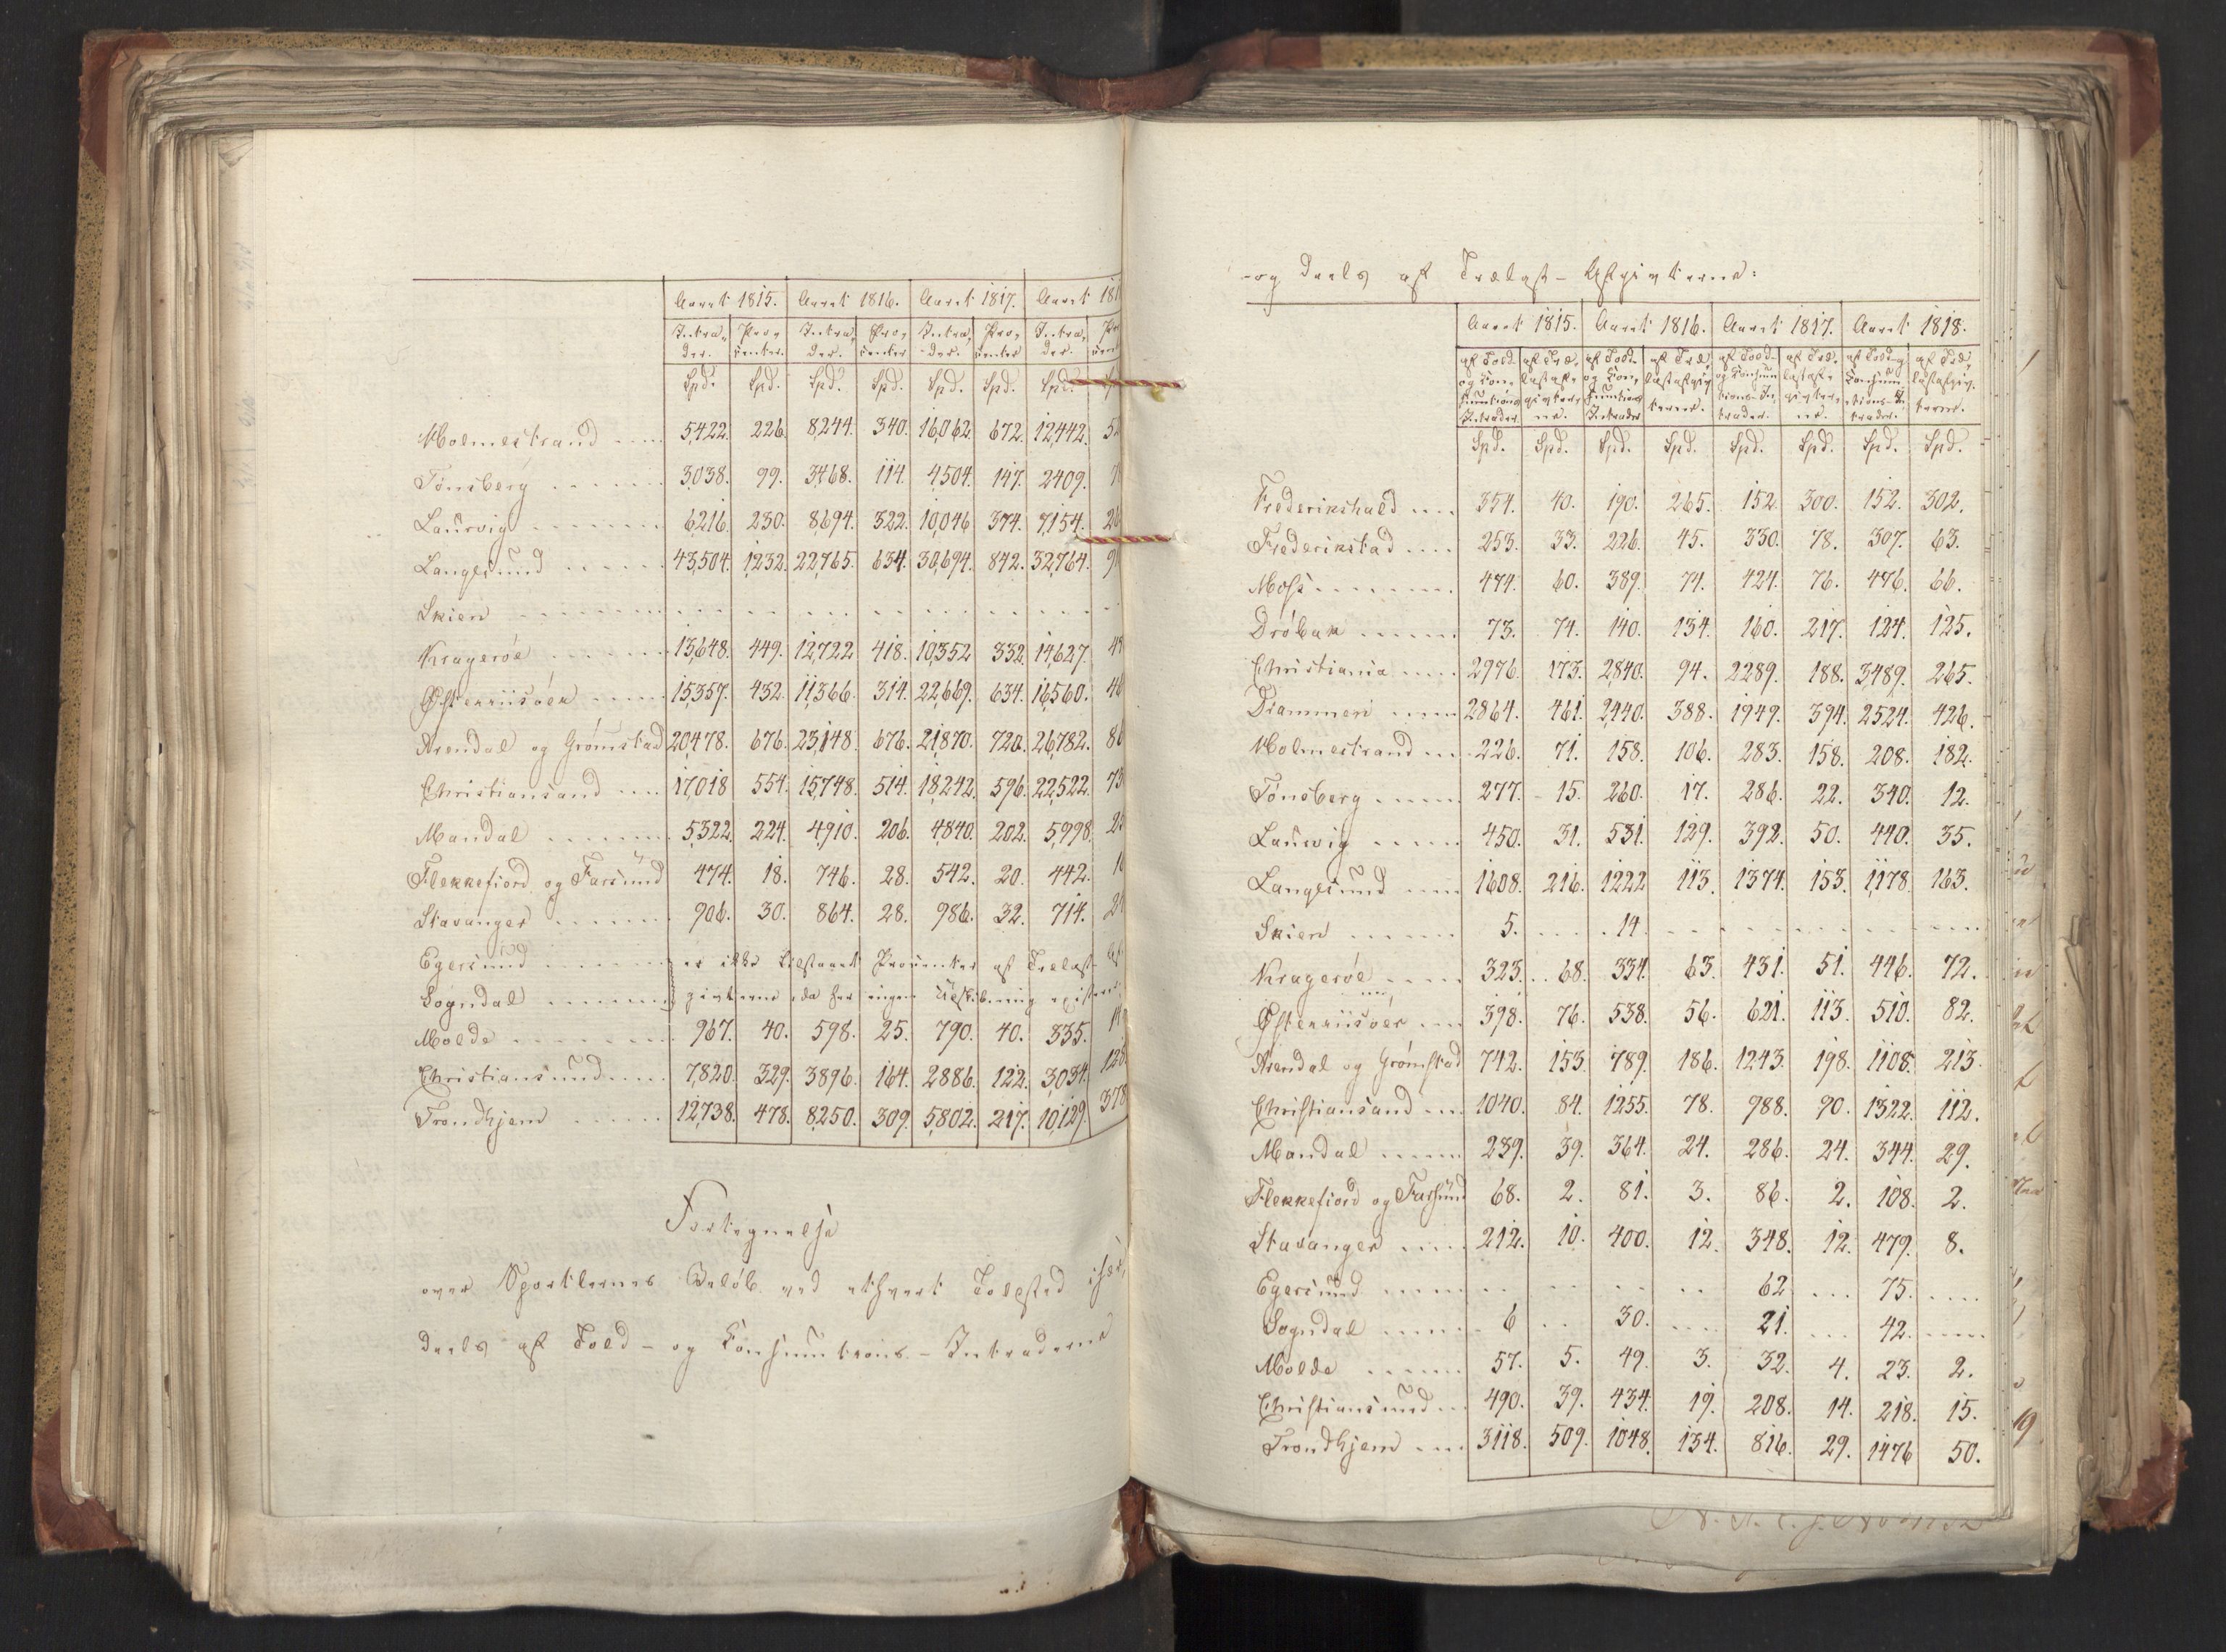 Aaret 1815. Aaret 1816. Aaret 1817. Aaret 181
Intra- Pro- Intra- Pro- Intra- Pro- Intra-
der. center. der. center der. center der.
Spd. Spd. Spd. Spd. Spd. Spd. Spd.
Holmestrand 5,422. 226. 8,244. 340. 16,062. 672. 12,442.
Tönsberg 3,038. 99. 3,468. 114. 4,504. 147. 2409.
Laurvig 6,216. 230. 8,694. 322. 10,046 374. 7,154.
Langesund 43,504. 1,232. 22,765. 634. 30,694. 842. 32,764.
Skien
Kragerøe 13,648. 449. 12,722 418. 10,352 332. 14,627.
Østerriisöer 15,357. 432. 11,366. 314. 22,669. 634. 16,560.
Arendal og Grömstad 20,478. 676. 23,148. 676. 21,870. 720. 26,782.
Christiansand 17,018 554. 15,748. 514. 18,242. 596. 22,522.
Mandal 5,322. 224. 4,910. 206. 4,840. 202. 5,998.
Flekkefiord og Farsund 474. 18. 746. 28. 542. 20. 442.
Stavanger 906. 30. 864. 28. 986. 32. 714.
Egersund er ikke tilstaaet Procenter af Trælast-Af-
Sogndal givterne, da her ingen Udskibning existerer
Molde 967. 40. 598. 25. 790. 40. 335.
Christiansund 7,820. 329. 3896. 164. 2886. 122. 3,034. 128
Trondhjem 12,738. 478. 8,250. 309. 5,802. 217. 10,129. 378
Fortegnelse
over Sportlernes Beløb ved ethvert Toldsted især,
deels af Told- og Consumtions-Intraderne
-og deels af Trælast-Afgivterne:
Aaret 1815. Aaret 1816. Aaret 1817. Aaret 1818.
af Told- af Træ- af Told- af Træ- af Told- af Træ- af Told-og af Træ-
og Con- lastaf- og Con- lastafgiv- og Consum- lastaf- Consum- lastafgiv-
sumtions givter- sumtions terne. tions-In- givter- tions-In- terne.
Intrader ne. Intrader trader. ne. trader.
Spd. Spd. Spd. Spd. Spd. Spd. Spd. Spd.
Frederikshald 354. 40. 190. 265. 152. 300. 152. 302.
Frederikstad 253. 33. 226. 45. 330. 78. 307. 63.
Moss 474. 60. 389. 74. 424. 76. 476. 66.
Dröbak 73. 74. 140. 134. 160. 217. 124. 125.
Christiania 2976. 173. 2,840. 94. 2289. 188. 3,489. 265.
Drammen 2864. 461. 2,440. 388. 1949. 394. 2524. 426.
Holmestrand 226. 71. 158. 106. 283. 158. 208. 182.
Tönsberg 277. 15. 260. 17. 286. 22. 340. 12.
Laurvig 450. 31. 531. 129. 392. 50. 440. 35.
Langesund 1608. 216. 1222 113. 1374. 153. 1,178. 163.
Skien 5. 14.
Kragerøe 323. 68. 334. 63. 431. 51. 446. 72.
Østerriisöer 398. 76. 538. 56. 621. 113. 510. 82.
Arendal og Grömstad 742. 153. 789. 186. 1243. 198. 1108. 213.
Christiansand 1040. 84. 1255. 78. 988. 90. 1322. 112.
Mandal 239. 39. 364. 24. 286. 24. 344. 29.
Flekkefiord og Farsund 68. 2. 81. 3. 86. 2. 108. 2.
Stavanger 212. 10. 400. 12. 348. 12. 479. 8.
Egersund 62 75.
Sogndal 6 30. 21. 42.
Molde 57. 5. 49. 3. 32. 4. 23. 2.
Christiansund 490. 39. 434. 19. 208. 14. 218. 15.
Trondhjem 3118. 509. 1048. 134. 816. 29. 1476 50.